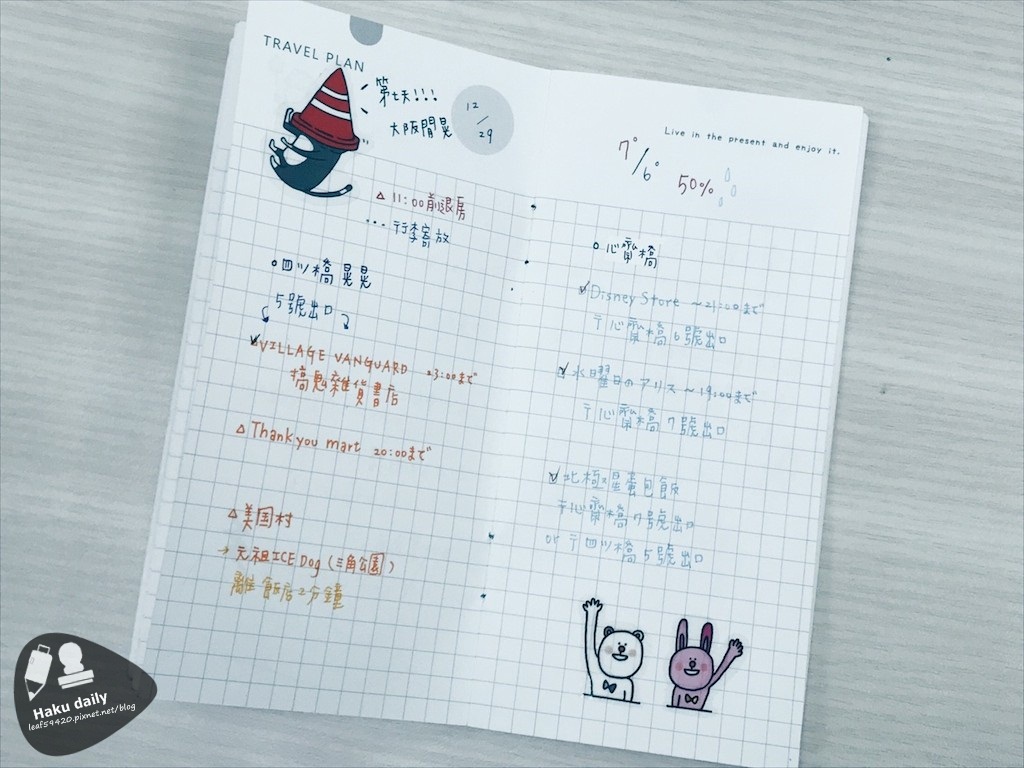 TRAVEL PLAN
第七天!!!
大阪閒晃
12/29
△ 11:00前退房
... 行李寄放
○四ツ橋 晃晃
5號出口
✓VILLAGE VANGUARD 23:00まで
搞鬼雜貨書店
△ Thank you mart 20:00まで
△ 美国村
→ 元祖ICE Dog (三角公園)
離飯店2分鐘
Live in the present and enjoy it.
7°/6° 50%
○ 心齋橋
✓Disney Store ~21:00まで
心齋橋6號出口
✓水曜日のアリス ~19:00まで
心齋橋7號出口
✓北極星蛋包飯
心齋橋7號出口
or 四ツ橋5號出口
Haku daily
leaf59420.pixnet.net/blog